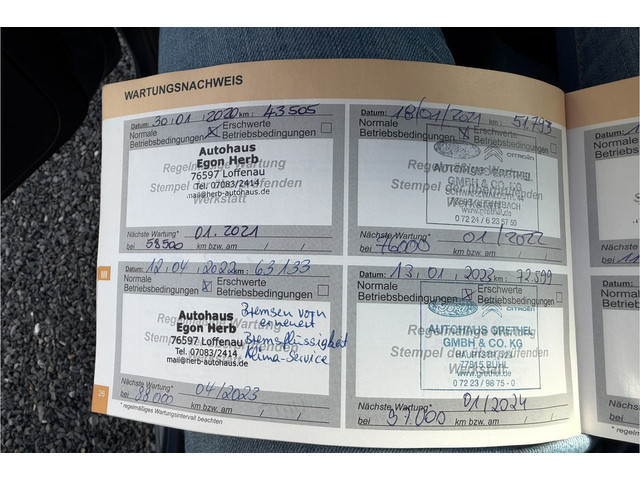 WARTUNGSNACHWEIS
Datum: 30.01.2020 km: 43505
Normale Betriebsbedingungen X Erschwerte Betriebsbedingungen
Regelmäßige Wartung
Stempel der ausführenden
Werkstatt
Autohaus
Egon Herb
76597 Loffenau
Tel. 07083/2414
mail@herb-autohaus.de
Nächste Wartung* 01.2021
bei 58500 km bzw. am / /
Datum: 18/01/2021 km: 51.793
Normale Betriebsbedingungen X Erschwerte Betriebsbedingungen
Regelmäßige Wartung
Stempel der ausführenden
Werkstatt
CITROËN
AUTOHAUS GRETHEL
GMBH & CO. KG
www.grethel.de
0 72 24 / 6 23 57 50
Nächste Wartung* 01/2022
bei 76000 km bzw. am / /
Datum: 12.04.2022 km: 63133
Normale Betriebsbedingungen X Erschwerte Betriebsbedingungen
Regelmäßige Wartung
Stempel der ausführenden
Werkstatt
Autohaus
Egon Herb
76597 Loffenau
Tel. 07083/2414
mail@herb-autohaus.de
Bremsen vorn
erneuert
Bremsflüssigkeit
Klima-Service
Nächste Wartung* 04/2023
bei 88000 km bzw. am / /
Datum: 13.01.2023 km: 72.599
Normale Betriebsbedingungen X Erschwerte Betriebsbedingungen
Regelmäßige Wartung
Stempel der ausführenden
Werkstatt
CITROËN
AUTOHAUS GRETHEL
GMBH & CO. KG
77815 BÜHL
www.grethel.de
0 72 23 / 98 75 - 0
Nächste Wartung* 01/2024
bei km bzw. am / /
* regelmäßiges Wartungsintervall beachten
26